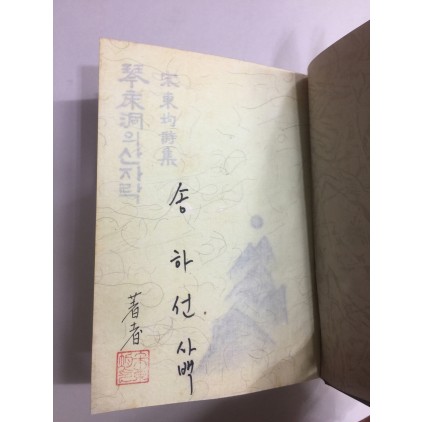 宋東均詩集
琴床洞의산자락
송하선 사백
著者